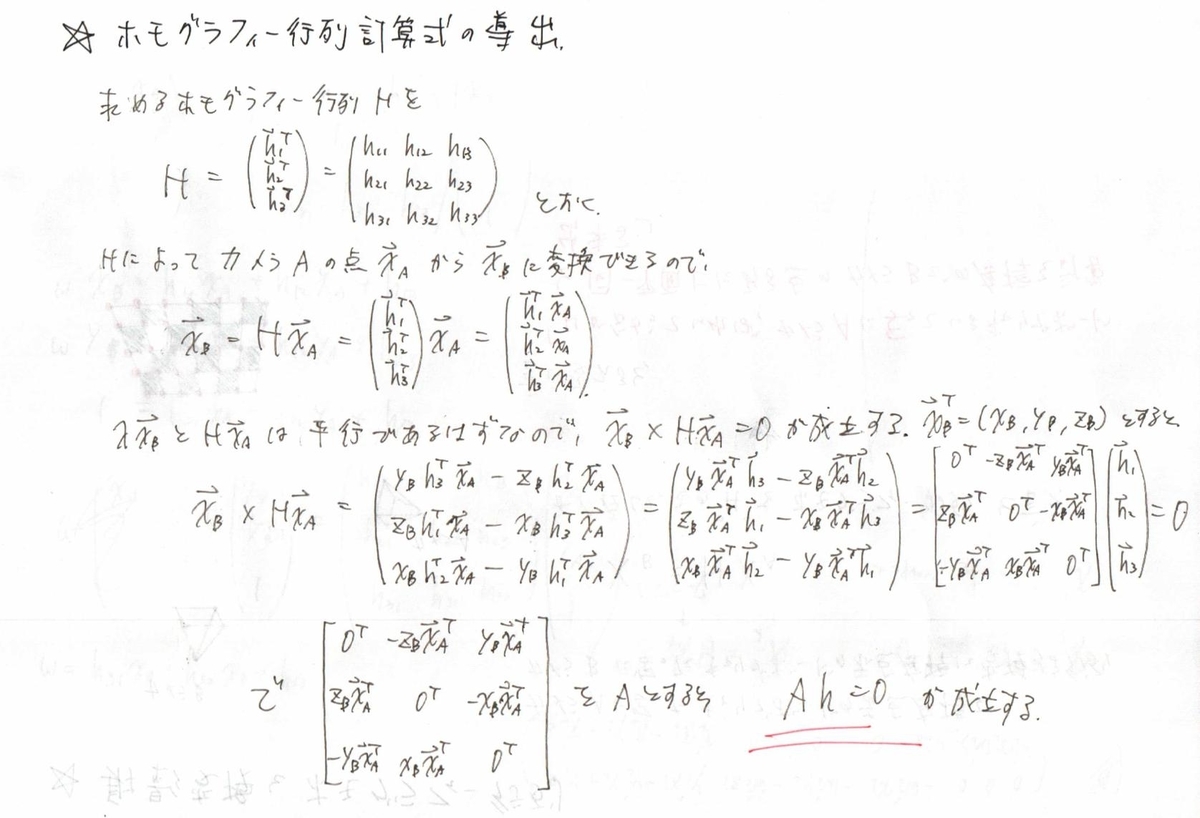 ☆ ホモグラフィー行列計算式の導出.
求めるホモグラフィー行列 H を
H = \begin{pmatrix} \vec{h}_1^T \\ \vec{h}_2^T \\ \vec{h}_3^T \end{pmatrix} = \begin{pmatrix} h_{11} & h_{12} & h_{13} \\ h_{21} & h_{22} & h_{23} \\ h_{31} & h_{32} & h_{33} \end{pmatrix} とおく.
Hによって カメラ A の点 \vec{x}_A から \vec{x}_B に変換できるので,
\vec{x}_B = H\vec{x}_A = \begin{pmatrix} \vec{h}_1^T \\ \vec{h}_2^T \\ \vec{h}_3^T \end{pmatrix} \vec{x}_A = \begin{pmatrix} \vec{h}_1^T \vec{x}_A \\ \vec{h}_2^T x_A \\ \vec{h}_3^T \vec{x}_A \end{pmatrix}.
\vec{x}_B と H\vec{x}_A は, 平行であるはずなので, \vec{x}_B × H\vec{x}_A = 0 が成立する. \vec{x}_B^T = (x_B, y_B, z_B) とすると
\vec{x}_B × H\vec{x}_A = \begin{pmatrix} y_B h_3^T \vec{x}_A - z_B h_2^T \vec{x}_A \\ z_B h_1^T \vec{x}_A - x_B h_3^T \vec{x}_A \\ x_B h_2^T \vec{x}_A - y_B h_1^T \vec{x}_A \end{pmatrix} = \begin{pmatrix} y_B \vec{x}_A^T \vec{h}_3 - z_B \vec{x}_A^T \vec{h}_2 \\ z_B \vec{x}_A^T \vec{h}_1 - x_B \vec{x}_A^T \vec{h}_3 \\ x_B \vec{x}_A^T \vec{h}_2 - y_B \vec{x}_A^T \vec{h}_1 \end{pmatrix} = \begin{bmatrix} 0^T & -z_B \vec{x}_A^T & y_B \vec{x}_A^T \\ z_B \vec{x}_A^T & 0^T & -x_B \vec{x}_A^T \\ -y_B \vec{x}_A^T & x_B \vec{x}_A^T & 0^T \end{bmatrix} \begin{bmatrix} \vec{h}_1 \\ \vec{h}_2 \\ \vec{h}_3 \end{bmatrix} = 0
で \begin{bmatrix} 0^T & -z_B \vec{x}_A^T & y_B \vec{x}_A^T \\ z_B \vec{x}_A^T & 0^T & -x_B \vec{x}_A^T \\ -y_B \vec{x}_A^T & x_B \vec{x}_A^T & 0^T \end{bmatrix} を A とすると Ah = 0 が成立する.